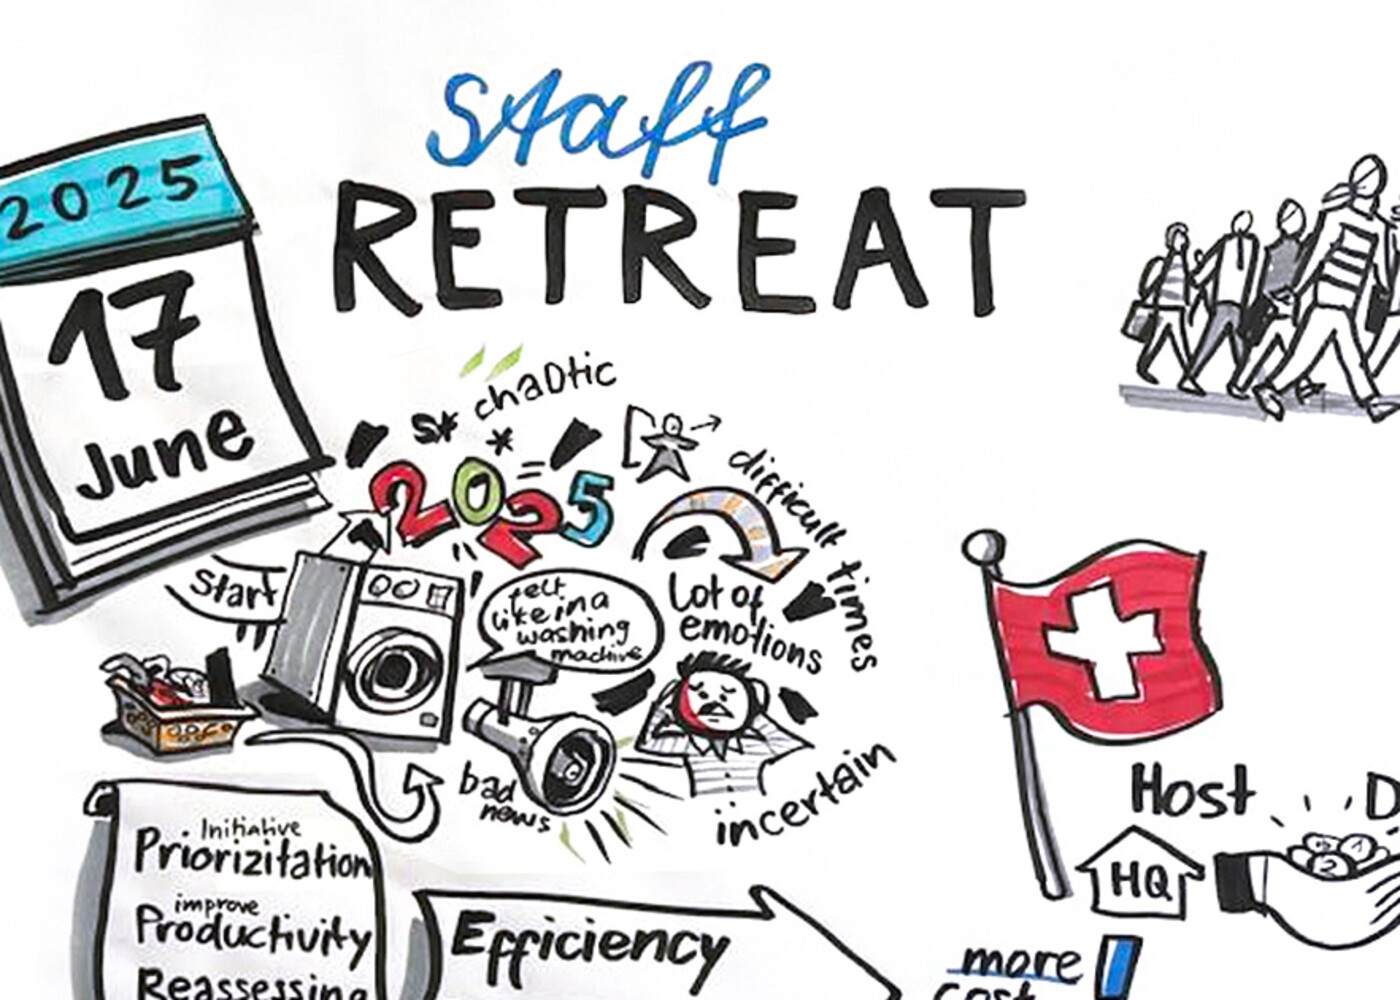 Staff
RETREAT
2025
17
June
chaotic
s*
*
2025
difficult times
Start
felt
like in a
washing
machine
Lot of
emotions
bad
news
incertain
Initiative
Priorizitation
improve
Productivity
Reassessing
Efficiency
Host
D
HQ
more
cost